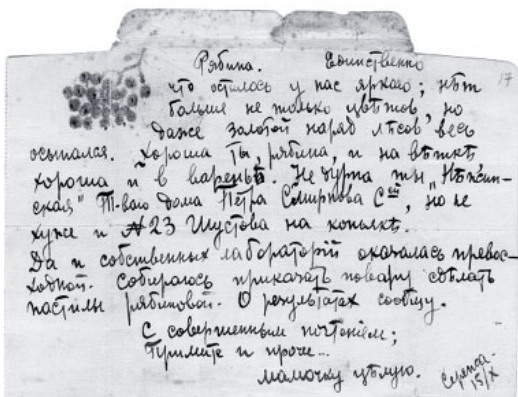 Рябина. Единственно
17
что осталось у нас яркаго; нѣтъ
больше не только цвѣтовъ, но
даже золотой нарядъ лѣсовъ весь
осыпался. Хороша ты, рябина, и на вѣткѣ
хороша и въ вареньѣ. Не дурна ты „Нѣжин-
ская" Т-ва Дома Петра Смирнова Сей, но не
хуже и №23 Шустова на коньякѣ.
Да и собственныхъ лабораторій оказалась превос-
ходной. Собираюсь приказать повару сдѣлать
пастилы рябиновой. О результатахъ сообщу.
Съ совершеннымъ почтеніемъ;
Примите и проче...
Мамочку цѣлую.
15/X